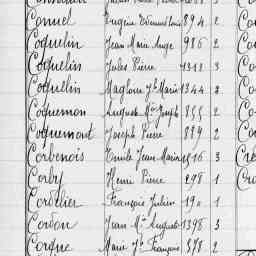 Connel Eugène Edouard Louis 894 2
Coquelin Jean Marie Ange 986 2
Coquelin Jules Pierre 1313 3
Coquelin Magloire Jh Marie 1344 2
Coquemon Auguste Mie Joseph 855 2
Coquemont Joseph Pierre 889 2
Corbenois Emile Jean Marie 1516 3
Corby Henri Pierre 298 1
Cordelier François Julien 190 1
Cordon Jean Mie Auguste 1398 3
Corgne Marie Jh François 378 2